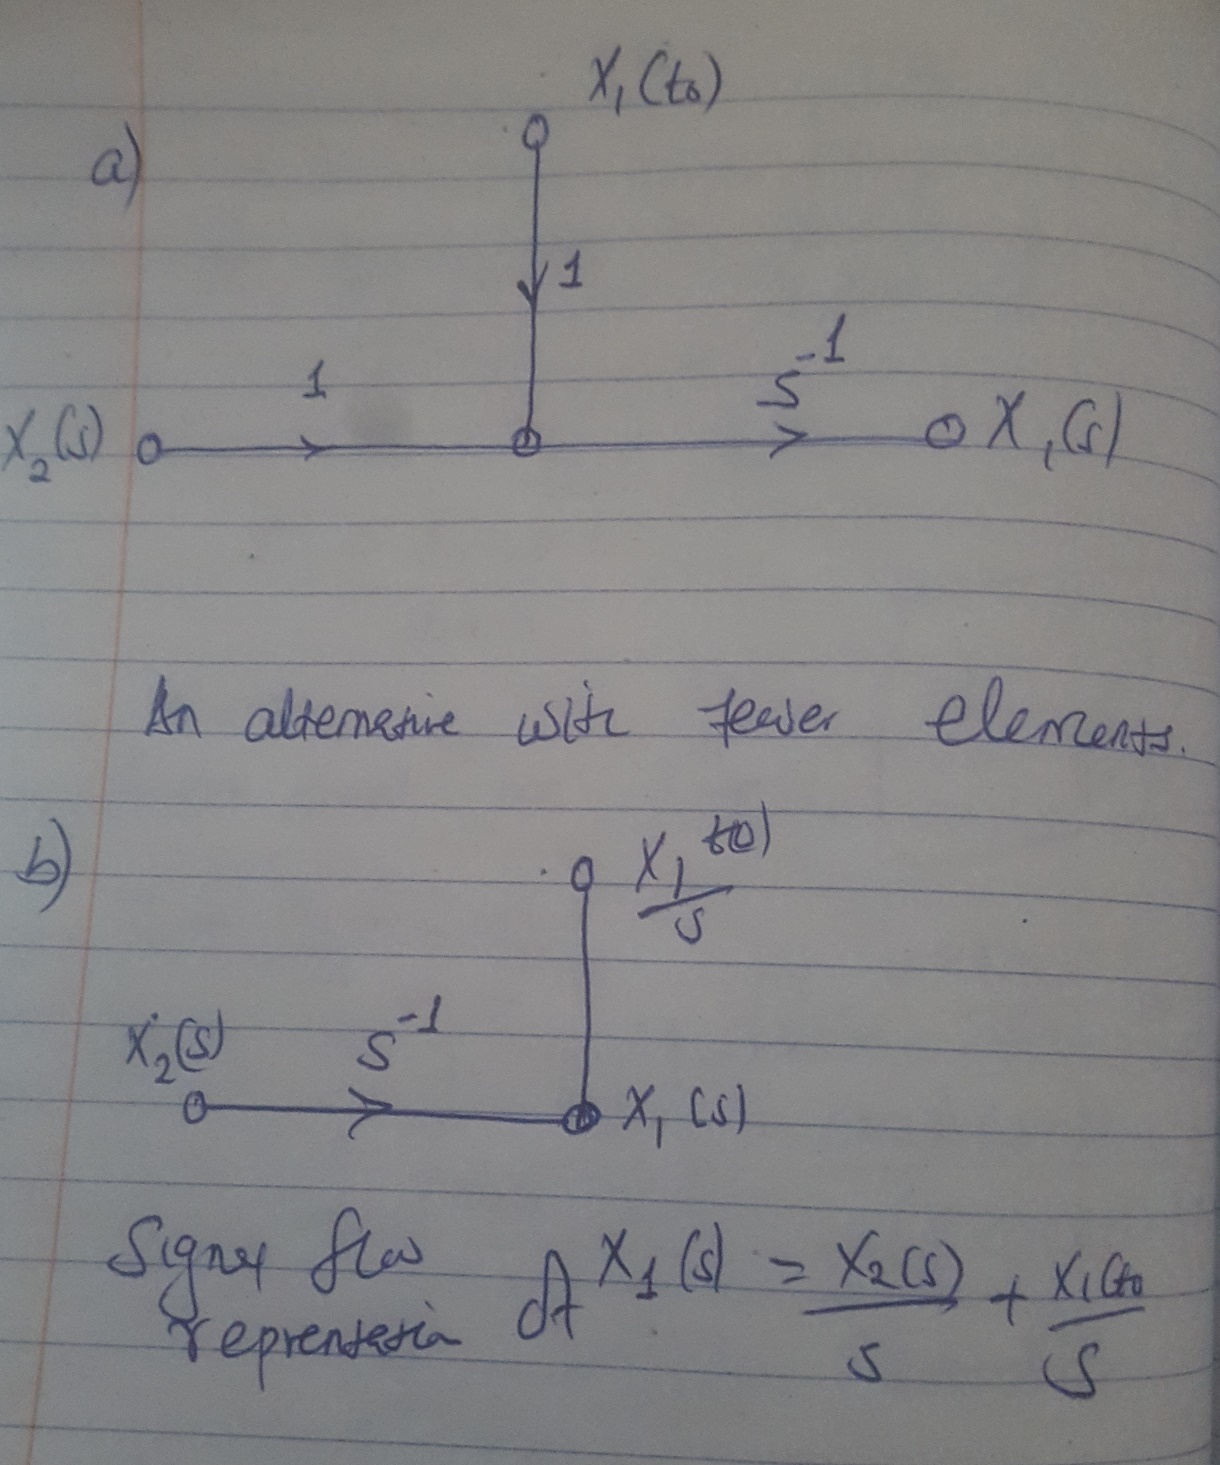 X₁(t₀)
a)
1
1
s⁻¹
X₂(s)
X₁(s)
An alternative with fewer elements.
b)
X₁(t0)/s
X₂(s)
s⁻¹
X₁(s)
Signal flow representation of X₁(s) = X₂(s)/s + X₁(t₀/s